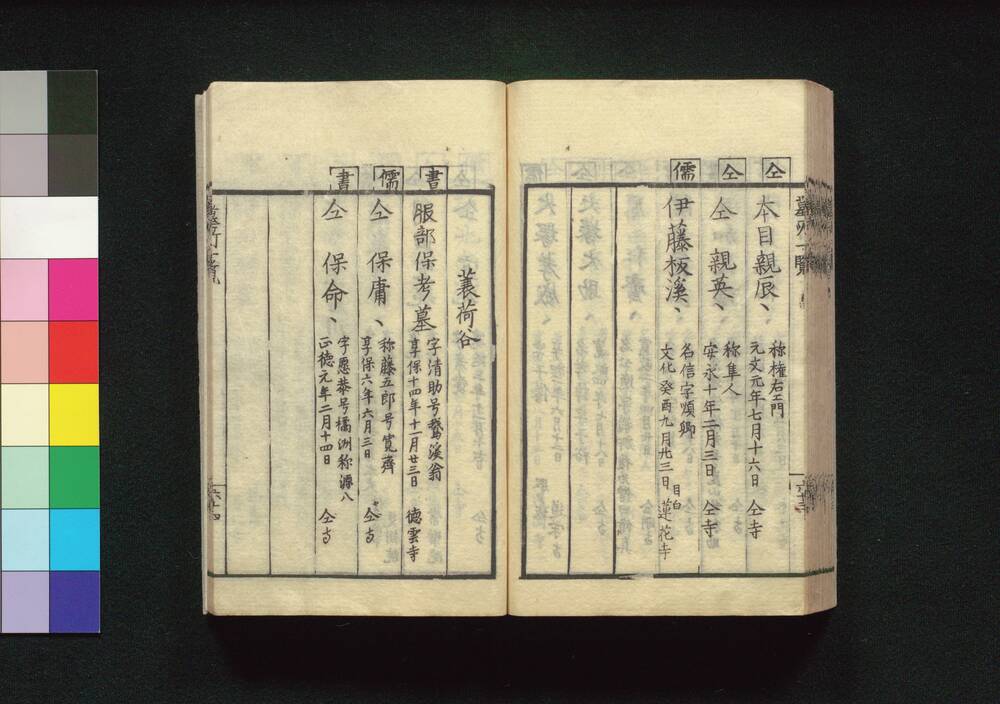 仝
本目親辰、
称権右ヱ門
元文元年七月十六日
仝寺
仝
仝 親英、
称隼人
安永十年二月三日
仝寺
儒
伊藤板溪、
名信字頌卿
文化癸酉九月廿三日
目白
蓮花寺
蓑荷谷
書
服部保考墓
字清助号鵞溪翁
享保十四年十一月廿三日
徳雲寺
儒
仝 保庸、
称藤五郎号寛齋
享保六年六月三日
仝寺
書
仝 保命、
字愿恭号橘洲称源八
正徳元年二月十四日
仝寺
六十四